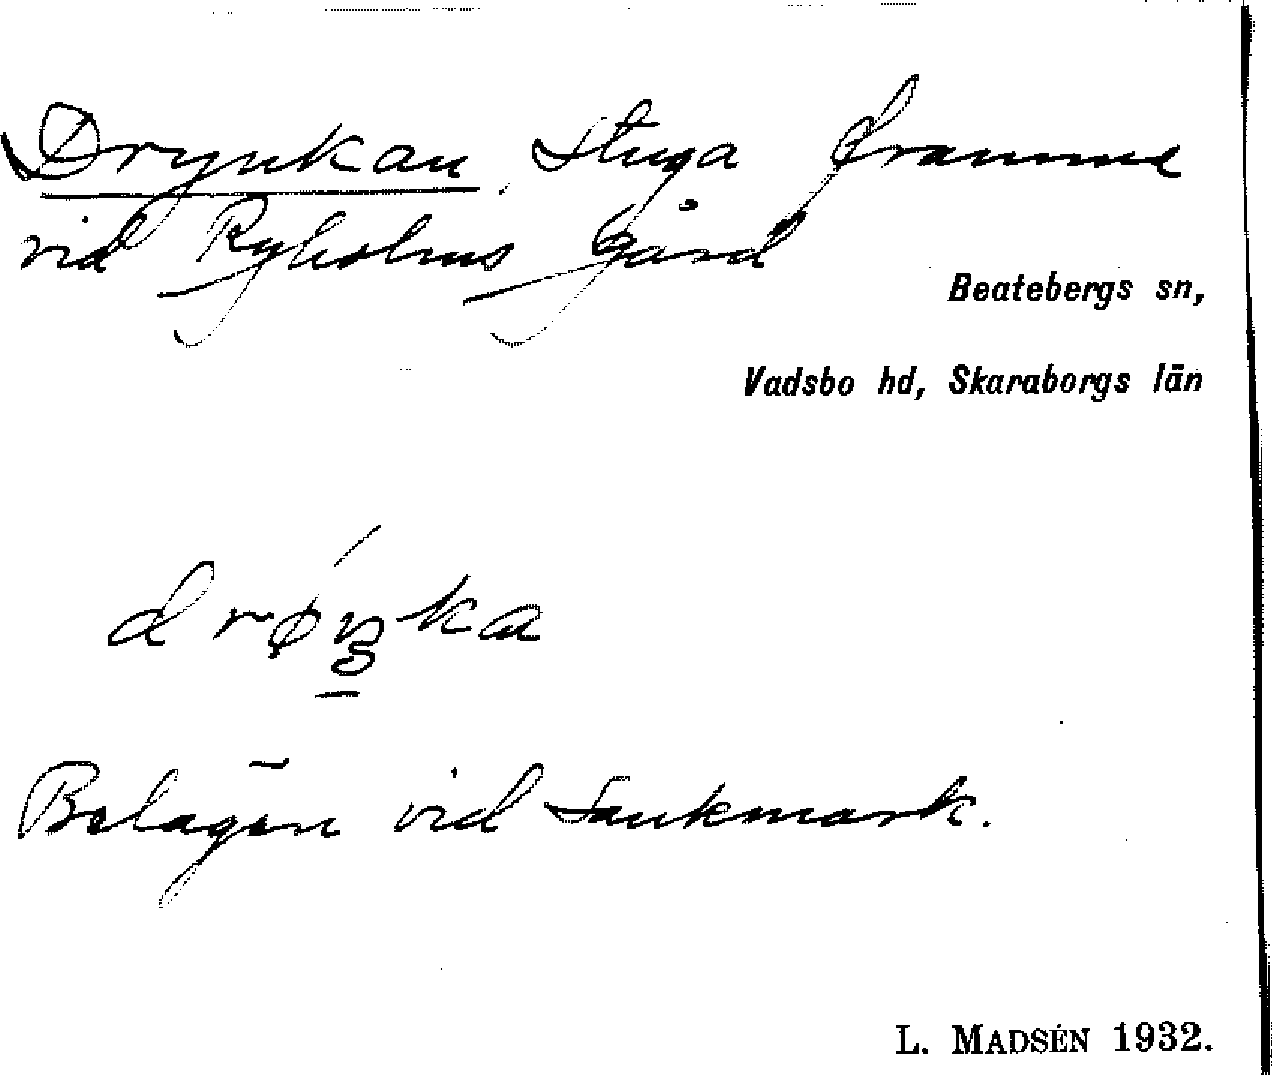 Drynkan, Stuga framme
vid Ryholms Gård
Beatebergs sn,
Vadsbo hd, Skaraborgs län
drøŋka
Belägen vid Sankmark.
L. MADSÉN 1932.